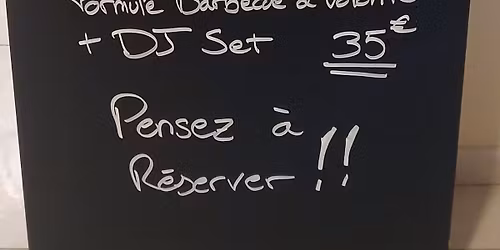 Formule Barbecue à volonté
+ DJ Set 35€
Pensez à
Réserver !!